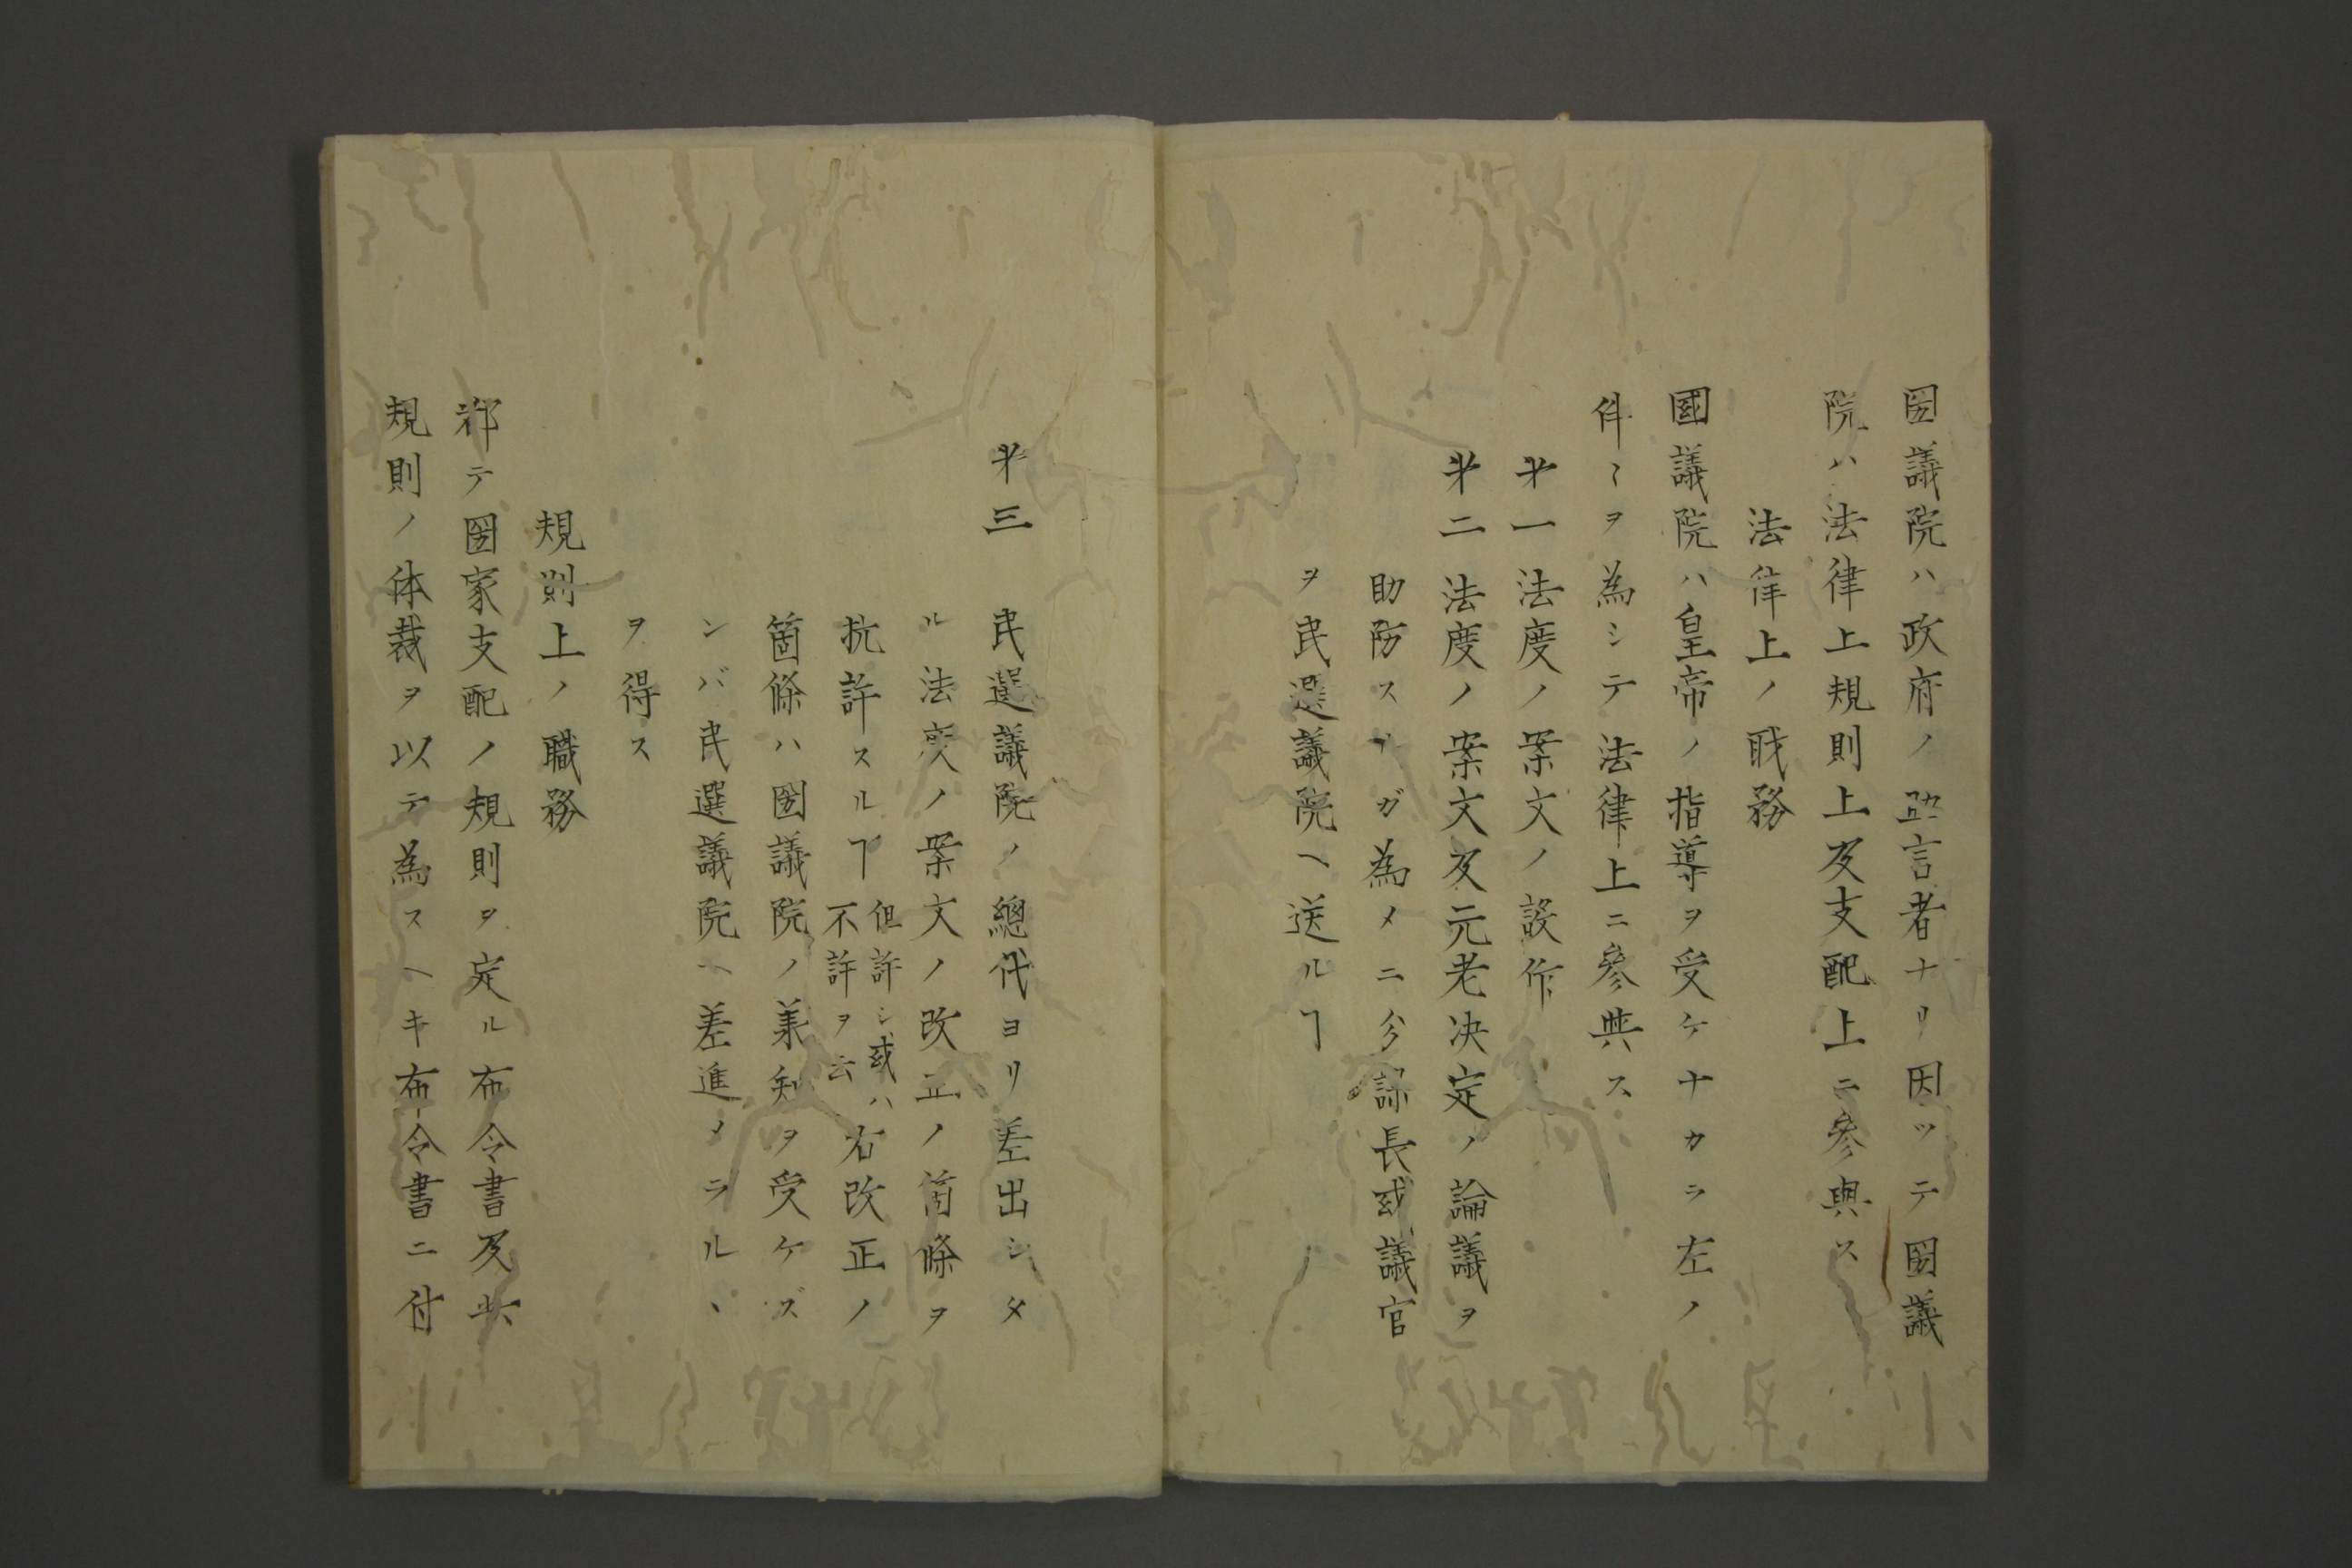 国議院ハ政府ノ助言者ナリ因ツテ国議
院ハ法律上規則上及支配上ニ參與ス
法律上ノ職務
國議院ハ皇帝ノ指導ヲ受ケナカラ左ノ
件〻ヲ為シテ法律上ニ參與ス
第一法度ノ案文ノ設作
第二法度ノ案文及元老决定ノ論議ヲ
助防スルヿガ為メニ分課長或議官
ヲ民選議院ヘ送ルヿ
第三 民選議院ノ總代ヨリ差出シタ
ル法度ノ案文ノ改正ノ箇條ヲ
抗許スルヿ但許シ或ハ不許ヲ云右改正ノ
箇條ハ国議院ノ兼知ヲ受ケズ
ンバ民選議院ヘ差進メラルヽ
ヲ得ス
規則上ノ職務
都テ国家支配ノ規則ヲ定ル布令書及共
規則ノ体裁ヲ以テ為スヘキ布令書ニ付